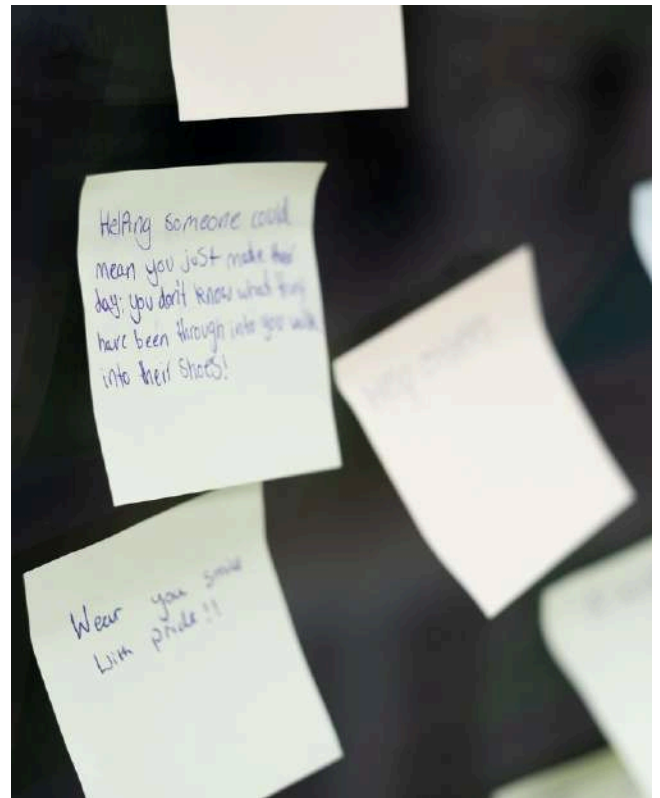 Helping someone could
mean you just make their
day; you don't know what they
have been through into you walk
into their shoes!
Wear you smile
with pride!!